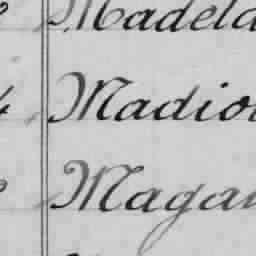 Madela
Madio
Magan